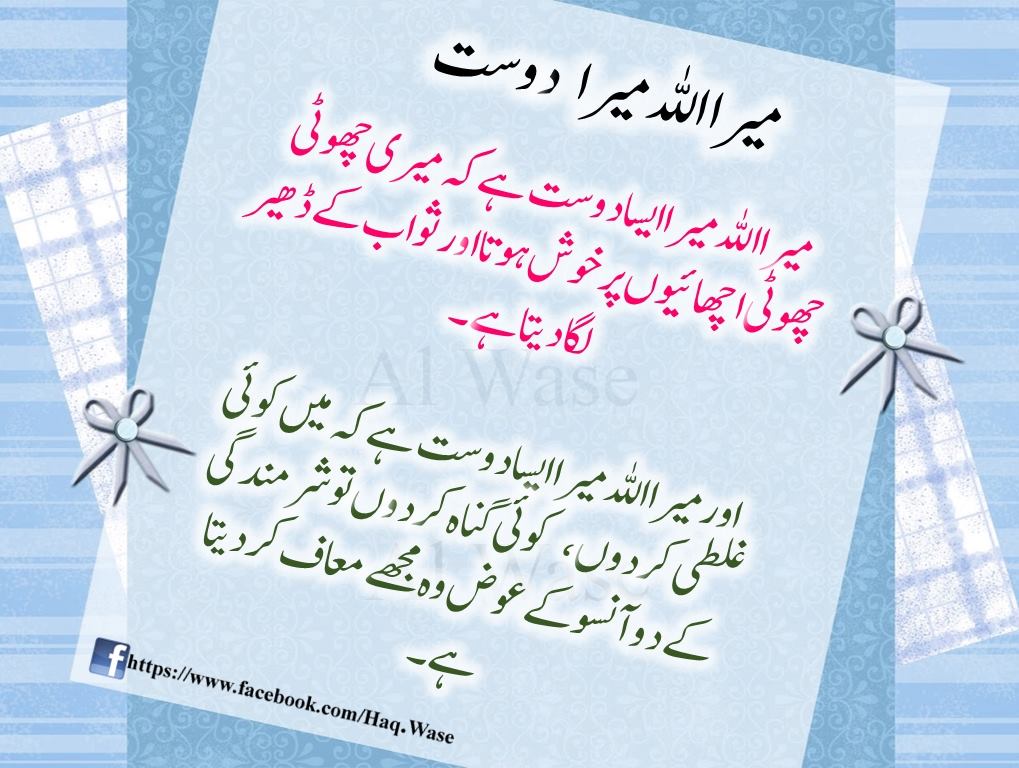 میرا اللہ میرا دوست
میرا اللہ میرا ایسا دوست ہے کہ میری چھوٹی
چھوٹی اچھائیوں پر خوش ہوتا اور ثواب کے ڈھیر
لگا دیتا ہے۔
Al Wase
اور میرا اللہ میرا ایسا دوست ہے کہ میں کوئی
غلطی کر دوں، کوئی گناہ کر دوں تو شرمندگی
کے دو آنسو کے عوض وہ مجھے معاف کر دیتا
ہے۔
Al Wase
https://www.facebook.com/Haq.Wase